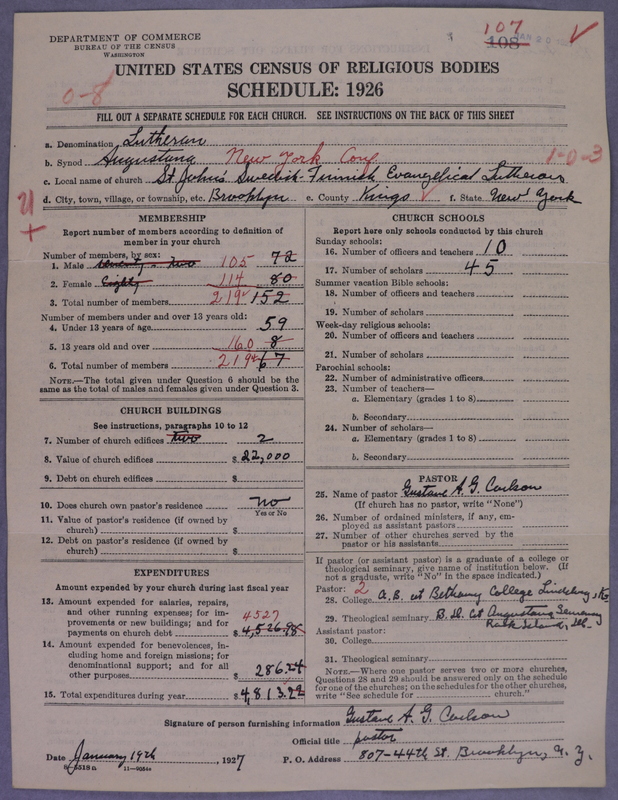 107
108
DEPARTMENT OF COMMERCE
BUREAU OF THE CENSUS
WASHINGTON
UNITED STATES CENSUS OF RELIGIOUS BODIES
SCHEDULE: 1926
0-8
FILL OUT A SEPARATE SCHEDULE FOR EACH CHURCH. SEE INSTRUCTIONS ON THE BACK OF THIS SHEET
a. Denomination Lutheran
b. Synod Augustana New York Conf. 1-0-3
c. Local name of church St John's Swedish-Finnish Evangelical Lutheran
d. City, town, village, or township, etc. Brooklyn e. County Kings f. State New York
MEMBERSHIP
Report number of members according to definition of member in your church
Number of members, by sex:
1. Male seventy-two 105 72
2. Female Eighty 114 80
3. Total number of members 219 152
Number of members under and over 13 years old:
4. Under 13 years of age 59
5. 13 years old and over 160 8
6. Total number of members 219 67
NOTE.—The total given under Question 6 should be the same as the total of males and females given under Question 3.
CHURCH BUILDINGS
See instructions, paragraphs 10 to 12
7. Number of church edifices two 2
8. Value of church edifices $ 22,000
9. Debt on church edifices $
10. Does church own pastor's residence No
Yes or No
11. Value of pastor's residence (if owned by church) $
12. Debt on pastor's residence (if owned by church) $
EXPENDITURES
Amount expended by your church during last fiscal year
13. Amount expended for salaries, repairs, and other running expenses; for improvements or new buildings; and for payments on church debt 4527 $ 4,526.98
14. Amount expended for benevolences, including home and foreign missions; for denominational support; and for all other purposes 286.24
15. Total expenditures during year $ 4,813.22
CHURCH SCHOOLS
Report here only schools conducted by this church
Sunday schools:
16. Number of officers and teachers 10
17. Number of scholars 45
Summer vacation Bible schools:
18. Number of officers and teachers
19. Number of scholars
Week-day religious schools:
20. Number of officers and teachers
21. Number of scholars
Parochial schools:
22. Number of administrative officers
23. Number of teachers—
a. Elementary (grades 1 to 8)
b. Secondary
24. Number of scholars—
a. Elementary (grades 1 to 8)
b. Secondary
PASTOR
25. Name of pastor Gustave A. G. Carlson
(If church has no pastor, write "None")
26. Number of ordained ministers, if any, employed as assistant pastors
27. Number of other churches served by the pastor or his assistants
If pastor (or assistant pastor) is a graduate of a college or theological seminary, give name of institution below. (If not a graduate, write "No" in the space indicated.)
Pastor: 2
28. College A.B. at Bethany College Lindsborg, Ks
29. Theological seminary B.D. at Augustana Seminary
Rock Island, Ill.
Assistant pastor:
30. College
31. Theological seminary
NOTE.—Where one pastor serves two or more churches, Questions 28 and 29 should be answered only on the schedule for one of the churches; on the schedules for the other churches, write "See schedule for church."
Signature of person furnishing information Gustave A. G. Carlson
Official title pastor
Date January 19th, 1927 P. O. Address 807-44th St. Brooklyn, N. Y.
8-5518a 11-9054a